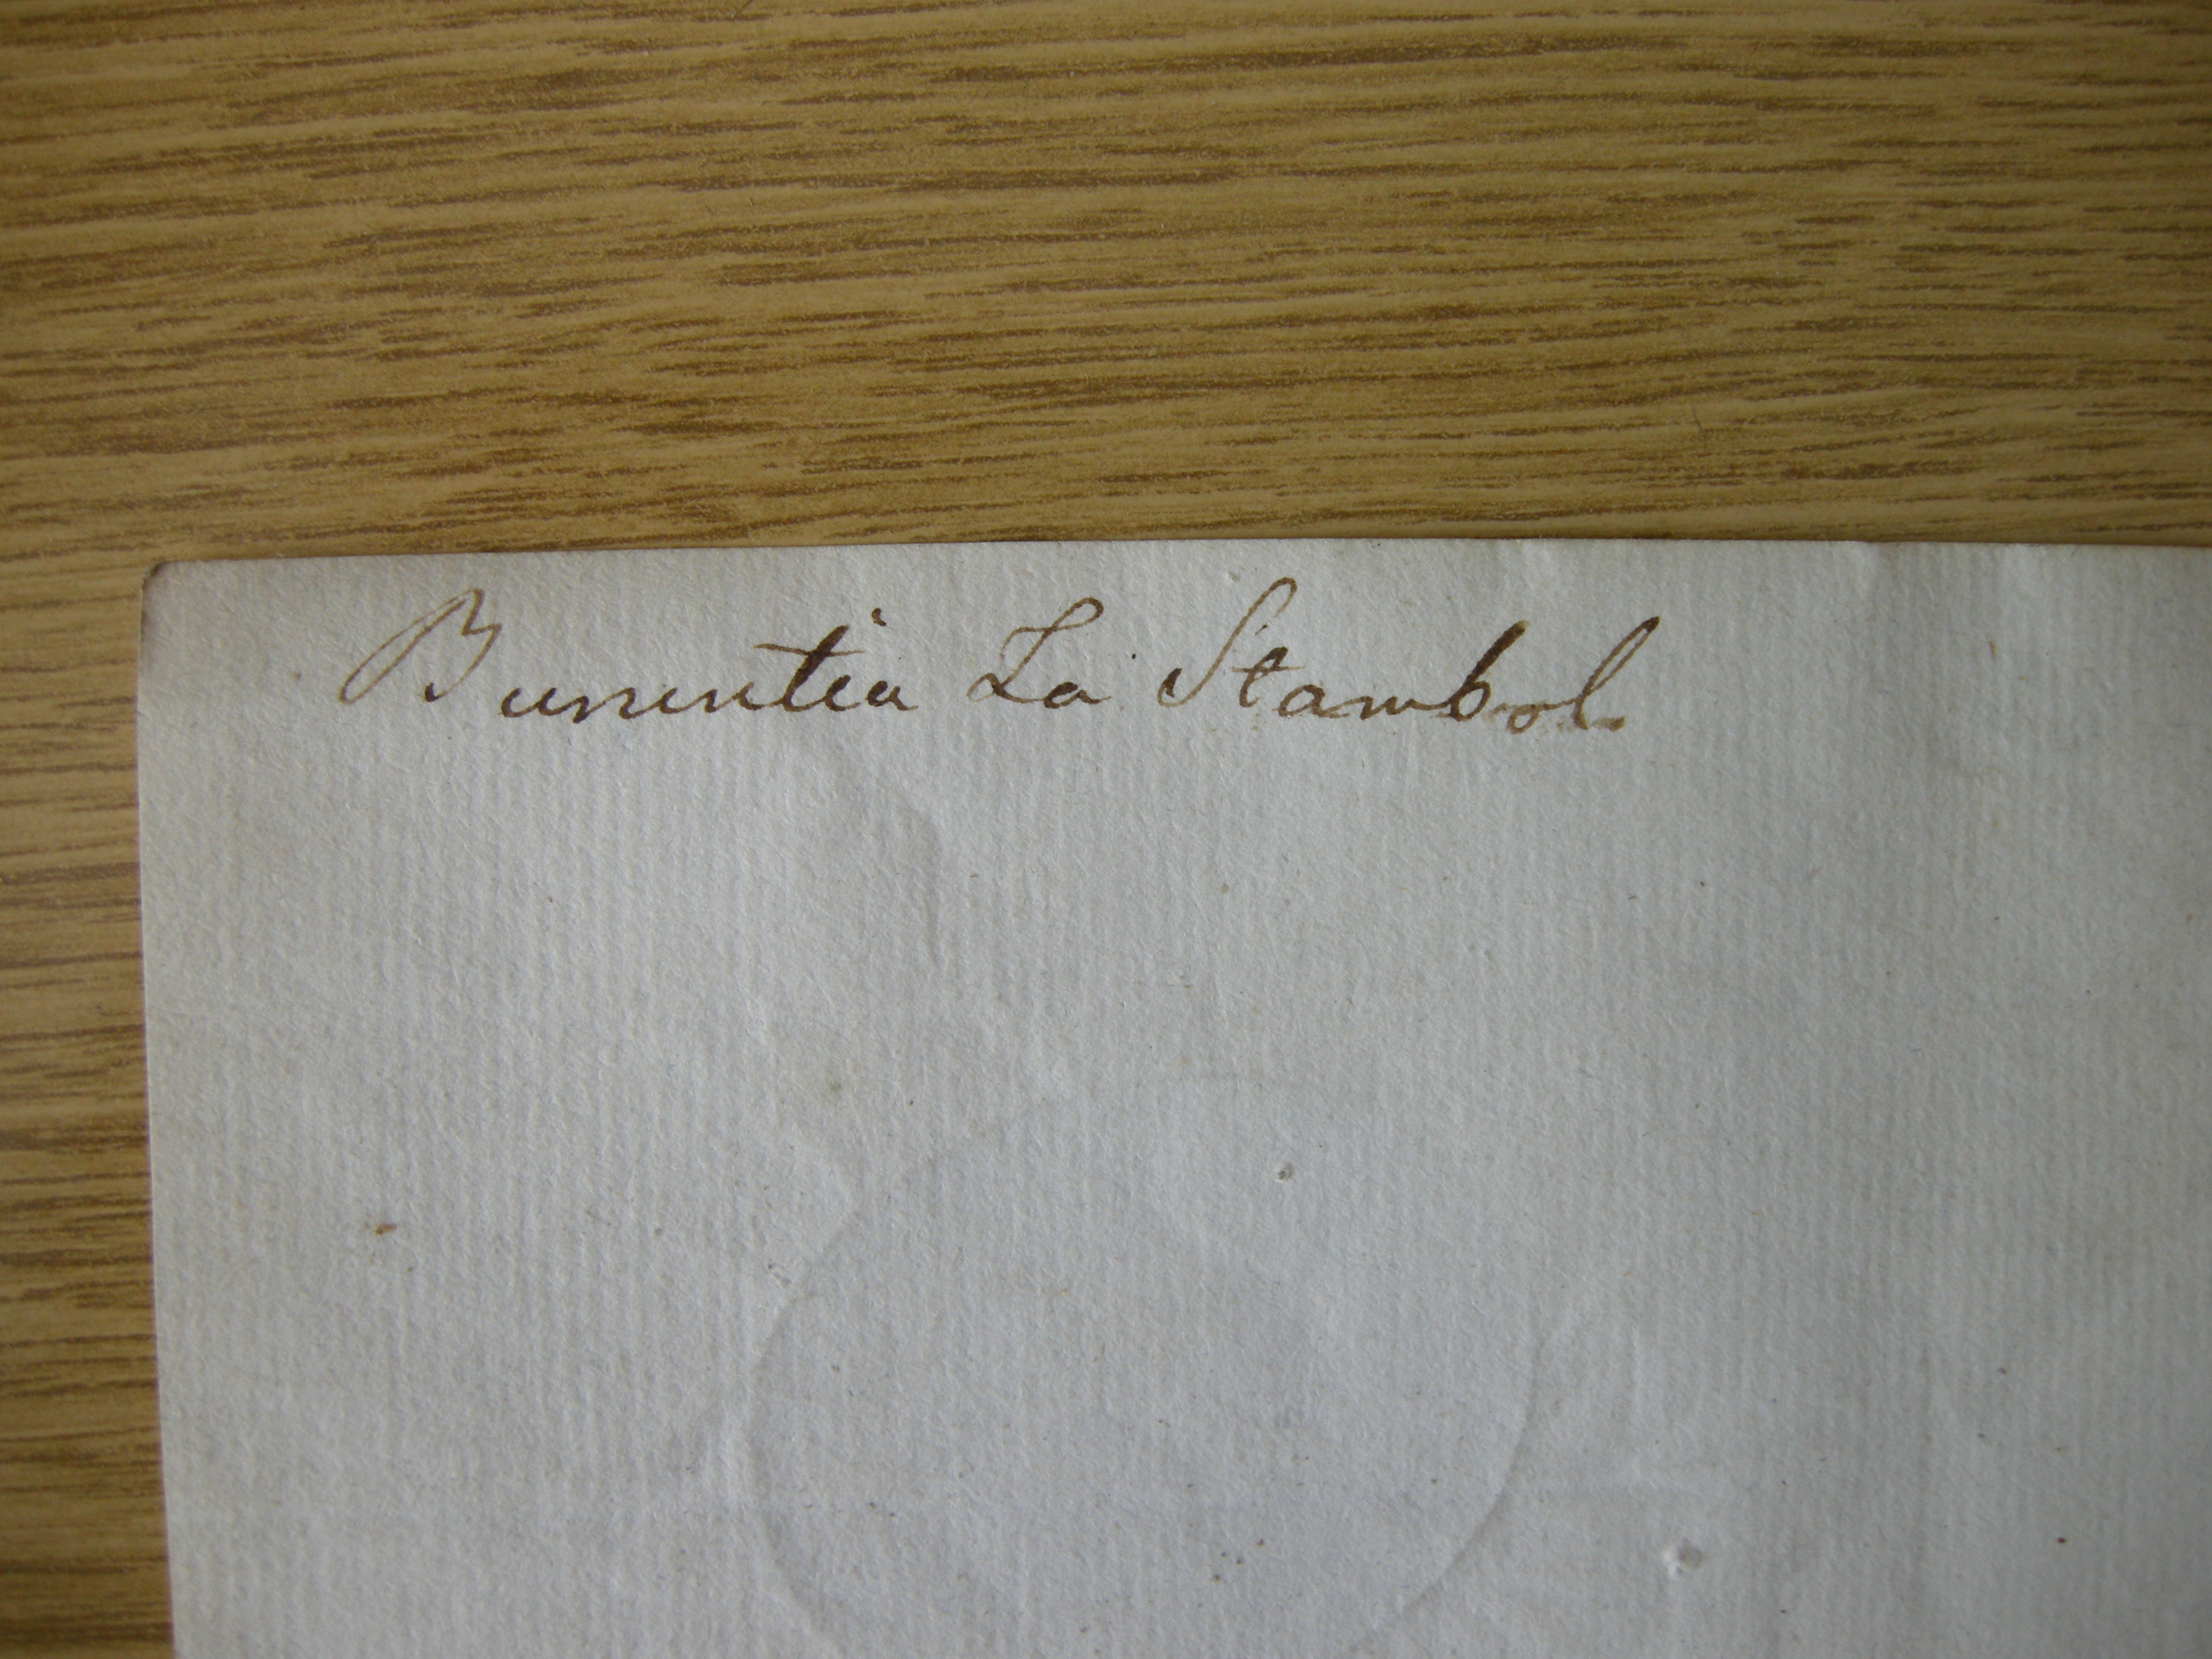 Bunintia La Stambol